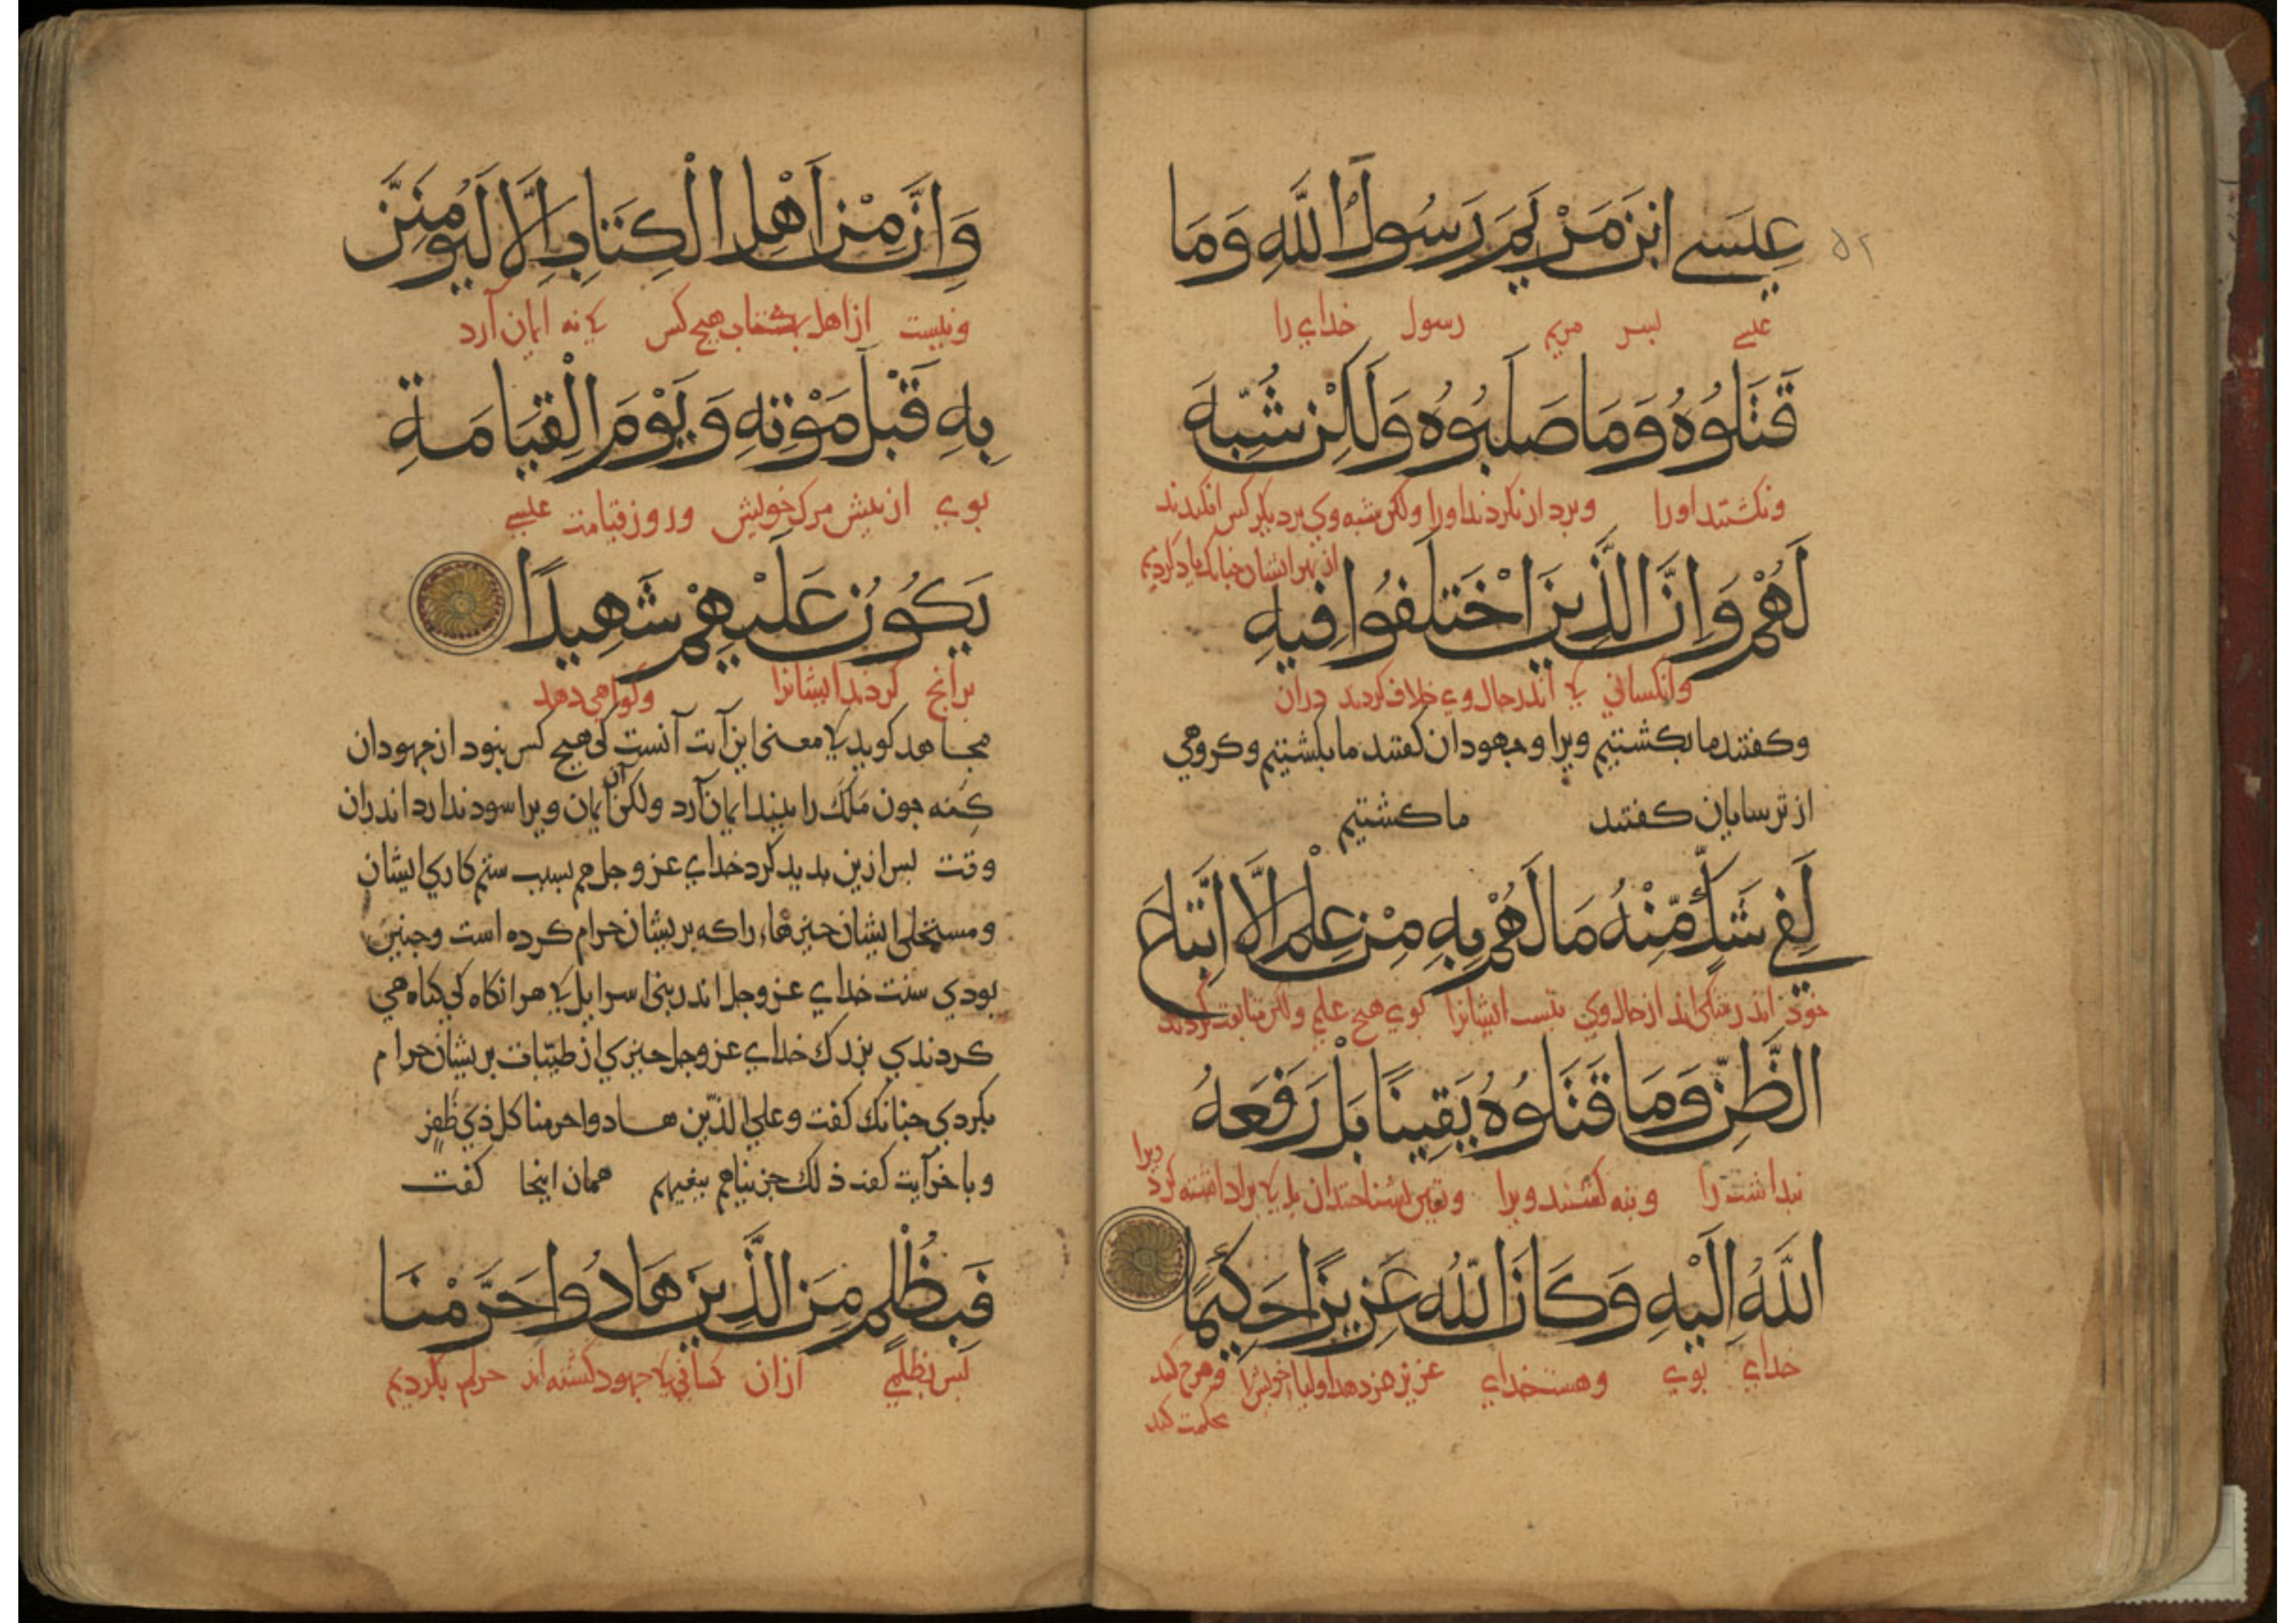 ۵۲
عِيسَى ابْنَ مَرْيَمَ رَسُولَ اللَّهِ وَمَا
عیسی پسر مریم رسول خدای را
قَتَلُوهُ وَمَا صَلَبُوهُ وَلَكِنْ شُبِّهَ
ونکشتند اورا وبردار نکردند اورا ولکن شبه وی بر دیکر کس افکندند
از بهر ایشان جنانک یاد کردیم
لَهُمْ وَإِنَّ الَّذِينَ اخْتَلَفُوا فِيهِ
وانکسانی کی اندر حال وی خلاف کردند دران
وکفتند ما بکشتیم ویرا وجهودان کفتند ما بکشتیم وکروهی
از ترسایان کفتند ما کشتیم
لَفِي شَكٍّ مِّنْهُ مَا لَهُمْ بِهِ مِنْ عِلْمٍ إِلَّا اتِّبَاعَ
خود اندر شکی اند از حال وی نیست ایشانرا بوی هیچ علم ولکن متابعت کردند
الظَّنِّ وَمَا قَتَلُوهُ يَقِينًا بَلْ رَفَعَهُ
ویرا
بنداشت را وبنه کشتند ویرا ویقین بشناختندان بل کی برداشته کرد
اللَّهُ إِلَيْهِ وَكَانَ اللَّهُ عَزِيزًا حَكِيمًا
خدای بوی وهست خدای عزیز اولیا خویش را کند
حکمت کند
وَإِنْ مِنْ أَهْلِ الْكِتَابِ إِلَّا لَيُؤْمِنَنَّ
ونیست از اهل کتاب هیچ کس کی نه ایمان آرد
بِهِ قَبْلَ مَوْتِهِ وَيَوْمَ الْقِيَامَةِ
بوی از پیش مرک خویش وروز قیامت عیسی
يَكُونُ عَلَيْهِمْ شَهِيدًا
برانج کردند ایشانرا وکواهی دهد
مجاهد کوید کی معنی این آیت آنست کی هیچ کس بنود از جهودان
کنه جون مَلَک را ببیند ایمان آرد ولکن آن ایمان ویرا سود ندارد اندران
وقت پس ازین بدید کرد خدای عز وجل هم بسبب ستم کاری ایشان
ومستحلی ایشان جیزهاء را که بریشان حرام کرده است وجنین
بودی سنت خدای عز وجل اندر بنی اسرایل کی هرانکاه کی کناه می
کردندی بزرک خدای عز وجل جیزی از طیّبات بریشان حرام
بکردی جنانک کفت وعلی الذّین هادوا حرمنا کل ذی ظفر
وباخر آیت کفت ذلک جزیناهم ببغیهم همان اینجا کفت
فَبِظُلْمٍ مِنَ الَّذِينَ هَادُوا حَرَّمْنَا
پس بظلمی ازان کسانی کی جهود کشته اند حرام بکردیم